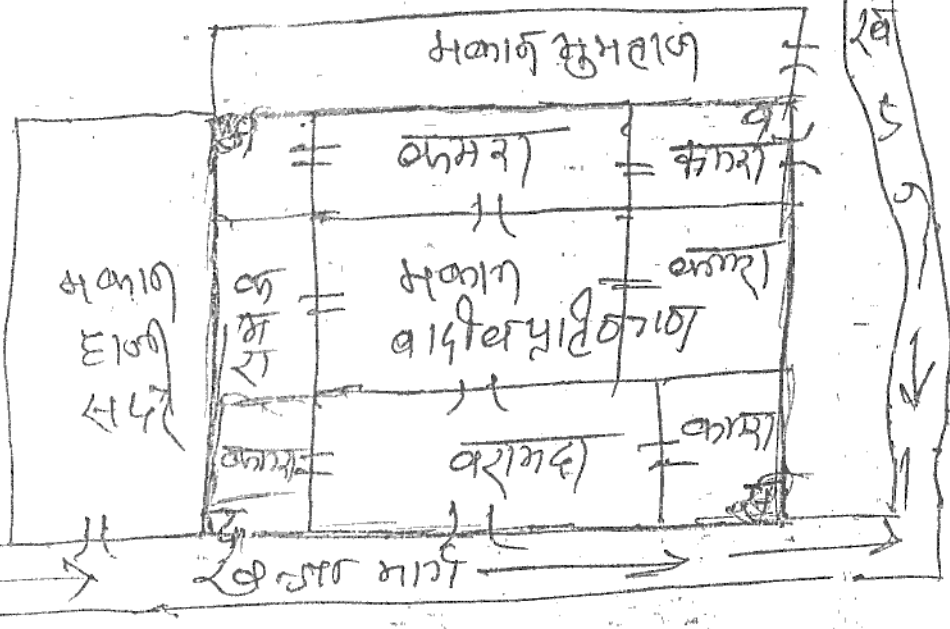 मकान मुमताज
कमरा
कमरा
मकान
हाजी
सदर
कमरा
मकान
वादी व प्रतिवादीगण
कमरा
कमरा
बरामदा
कमरा
खड़न्जा मार्ग